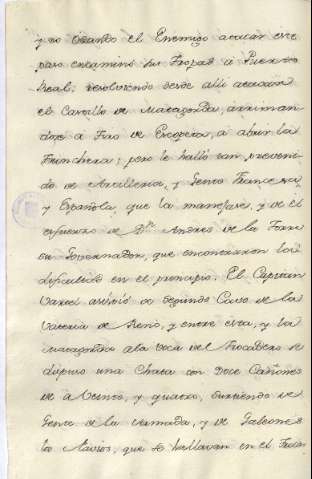 y no osando el Enemigo atacar este
paso encamino sus Tropas à Puerto
Real; resolviendo desde alli atacar
el Castillo de Matagorda, arriman
dose a Tiro de Escopeta, à abrir la
Trinchera; pero le hallò tan preveni
do de Artilleria, y Gente Francesa,
y Española, que la manejase, y de el
esfuerzo de Dn. Andres de la Torre
su Governador, que encontraron la
dificultad en el principio. El Capitan
asistió de Segundo Cavo de la
Vateria de y entre esta, y la
Matagorda a la voca del Trocadero se
dispuso una Chata con Doce Cañones
de a Veinte, y quatro, surtiendo de
Gente de la Armada, y de Galeones
los Navios, que se hallavan en el